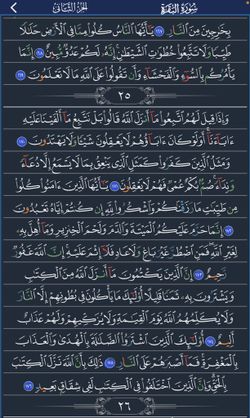 سُورَةُ البَقَرَة
الجُزءُ الثَّانِى
بِخَٰرِجِينَ مِنَ ٱلنَّارِ ١٦٧ يَٰٓأَيُّهَا ٱلنَّاسُ كُلُوا۟ مِمَّا فِى ٱلْأَرْضِ حَلَٰلًا
طَيِّبًا وَلَا تَتَّبِعُوا۟ خُطُوَٰتِ ٱلشَّيْطَٰنِ إِنَّهُۥ لَكُمْ عَدُوٌّ مُّبِينٌ ١٦٨ إِنَّمَا
يَأْمُرُكُم بِٱلسُّوٓءِ وَٱلْفَحْشَآءِ وَأَن تَقُولُوا۟ عَلَى ٱللَّهِ مَا لَا تَعْلَمُونَ ١٦٩
٢٥
وَإِذَا قِيلَ لَهُمُ ٱتَّبِعُوا۟ مَآ أَنزَلَ ٱللَّهُ قَالُوا۟ بَلْ نَتَّبِعُ مَآ أَلْفَيْنَا عَلَيْهِ
ءَابَآءَنَآ أَوَلَوْ كَانَ ءَابَآؤُهُمْ لَا يَعْقِلُونَ شَيْـًٔا وَلَا يَهْتَدُونَ ١٧٠
وَمَثَلُ ٱلَّذِينَ كَفَرُوا۟ كَمَثَلِ ٱلَّذِى يَنْعِقُ بِمَا لَا يَسْمَعُ إِلَّا دُعَآءً
وَنِدَآءً صُمٌّۢ بُكْمٌ عُمْىٌ فَهُمْ لَا يَعْقِلُونَ ١٧١ يَٰٓأَيُّهَا ٱلَّذِينَ ءَامَنُوا۟ كُلُوا۟
مِن طَيِّبَٰتِ مَا رَزَقْنَٰكُمْ وَٱشْكُرُوا۟ لِلَّهِ إِن كُنتُمْ إِيَّاهُ تَعْبُدُونَ
١٧٢ إِنَّمَا حَرَّمَ عَلَيْكُمُ ٱلْمَيْتَةَ وَٱلدَّمَ وَلَحْمَ ٱلْخِنزِيرِ وَمَآ أُهِلَّ بِهِۦ
لِغَيْرِ ٱللَّهِ فَمَنِ ٱضْطُرَّ غَيْرَ بَاغٍ وَلَا عَادٍ فَلَآ إِثْمَ عَلَيْهِ إِنَّ ٱللَّهَ غَفُورٌ
رَّحِيمٌ ١٧٣ إِنَّ ٱلَّذِينَ يَكْتُمُونَ مَآ أَنزَلَ ٱللَّهُ مِنَ ٱلْكِتَٰبِ
وَيَشْتَرُونَ بِهِۦ ثَمَنًا قَلِيلًا أُو۟لَٰٓئِكَ مَا يَأْكُلُونَ فِى بُطُونِهِمْ إِلَّا ٱلنَّارَ
وَلَا يُكَلِّمُهُمُ ٱللَّهُ يَوْمَ ٱلْقِيَٰمَةِ وَلَا يُزَكِّيهِمْ وَلَهُمْ عَذَابٌ
أَلِيمٌ ١٧٤ أُو۟لَٰٓئِكَ ٱلَّذِينَ ٱشْتَرَوُا۟ ٱلضَّلَٰلَةَ بِٱلْهُدَىٰ وَٱلْعَذَابَ
بِٱلْمَغْفِرَةِ فَمَآ أَصْبَرَهُمْ عَلَى ٱلنَّارِ ١٧٥ ذَٰلِكَ بِأَنَّ ٱللَّهَ نَزَّلَ ٱلْكِتَٰبَ
بِٱلْحَقِّ وَإِنَّ ٱلَّذِينَ ٱخْتَلَفُوا۟ فِى ٱلْكِتَٰبِ لَفِى شِقَاقٍۭ بَعِيدٍ ١٧٦
٢٦